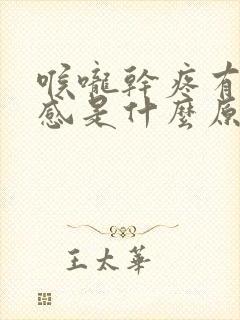 喉嚨幹疼有
感是什麼原
王太華